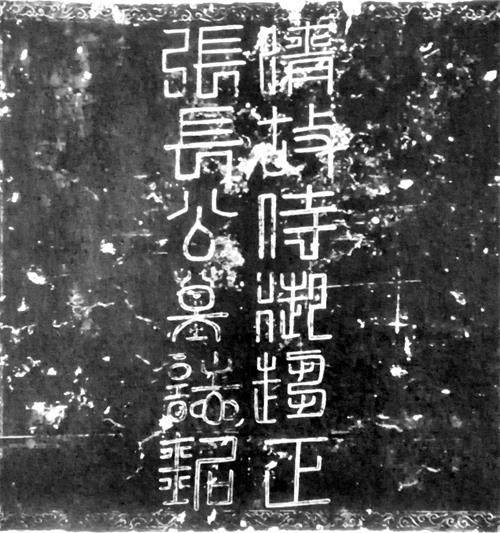 隋故侍御趨正
張長公墓誌銘